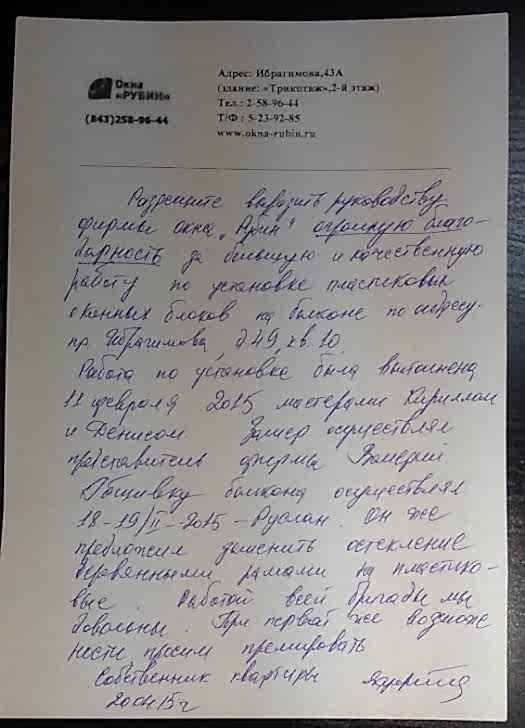 Окна
«РУБИН»
(843)258-96-44
Адрес: Ибрагимова,43А
(здание: «Трикотаж»,2-й этаж)
Тел.: 2-58-96-44
Т/Ф : 5-23-92-85
www.okna-rubin.ru
Разрешите выразить руководству
фирмы окна „Рубин" огромную благо-
дарность за быструю и качественную
работу по установке пластиковых
оконных блоков на балконе по адресу.
пр. Ибрагимова, д 49, кв. 10.
Работа по установке была выполнена
11 февраля 2015 мастерами Кириллом
и Денисом. Замер осуществлял
представитель фирмы Валерий
Обшивку балкона осуществлял
18-19/II-2015 – Руслан. Он же
предложил заменить остекление
деревянными рамами на пластико-
вые. Работой всей бригады мы
довольны. При первой же возмож
ности просим премировать
Собственник квартиры